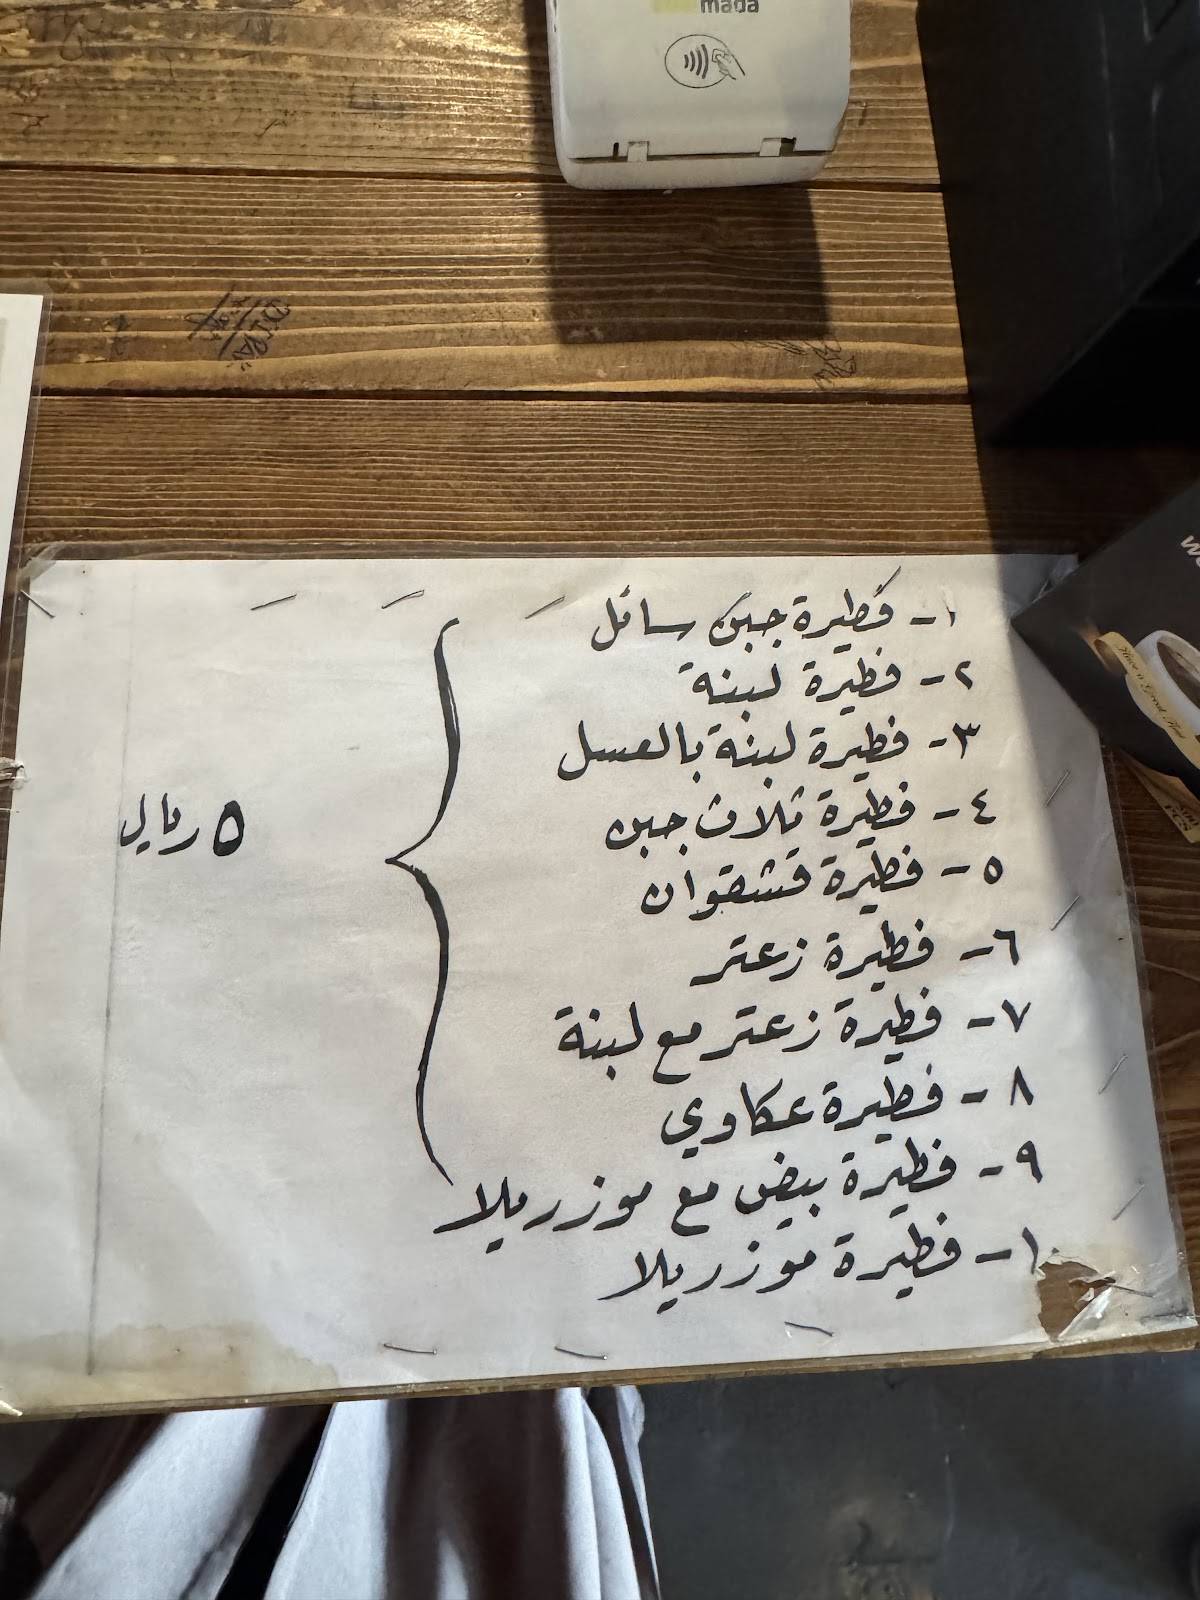 mada
١- فطيرة جبن سائل
٢- فطيرة لبنة
٣- فطيرة لبنة بالعسل
٤- فطيرة ثلاث جبن
٥- فطيرة قشقوان
٦- فطيرة زعتر
٧- فطيرة زعتر مع لبنة
٨- فطيرة عكاوي
٩- فطيرة بيض مع موزريلا
١٠- فطيرة موزريلا
٥ ريال